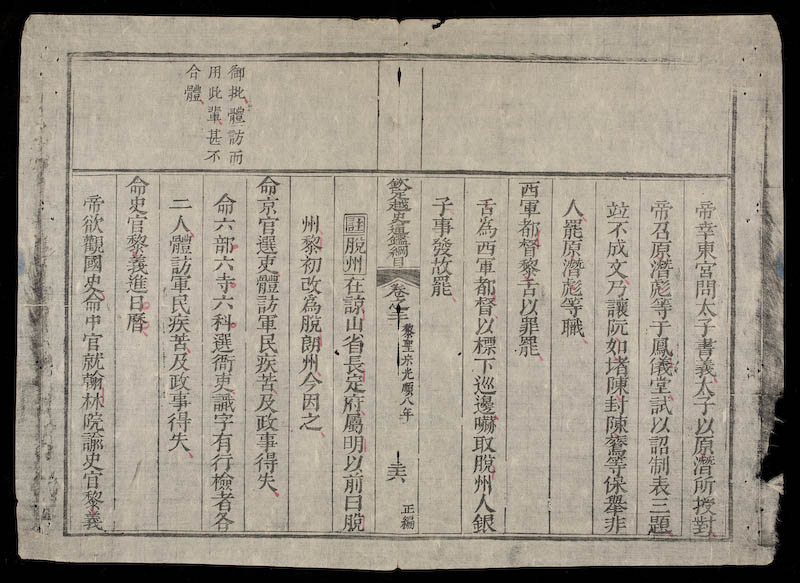 帝幸東宮問太子書義太子以原潛所授對
帝召原潛彪等于鳳儀堂試以詔制表三題
竝不成文乃讓阮如堵陳封陳鷟等保舉非
人罷原潛彪等職
西軍都督黎舌以罪罷
舌爲西軍都督以標下巡邊嚇取脫州人銀
子事發故罷
欽定越史通鑑綱目 卷之 黎聖宗光順八年 正編
註 脫州在諒山省長定府屬明以前曰脫
州黎初改爲脫朗州今因之
命京官選吏體訪軍民疾苦及政事得失
命六部六寺六科選衙吏識字有行檢者各
二人體訪軍民疾苦及政事得失
御批體訪而
用此輩甚不
合體
命史官黎義進日曆
帝欲觀國史命中官就翰林院諭史官黎義